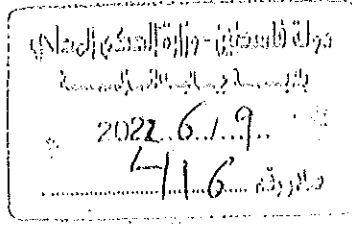 دولة فلسطين - وزارة الحكم المحلي
2022.6./.9..
صادر رقم 416